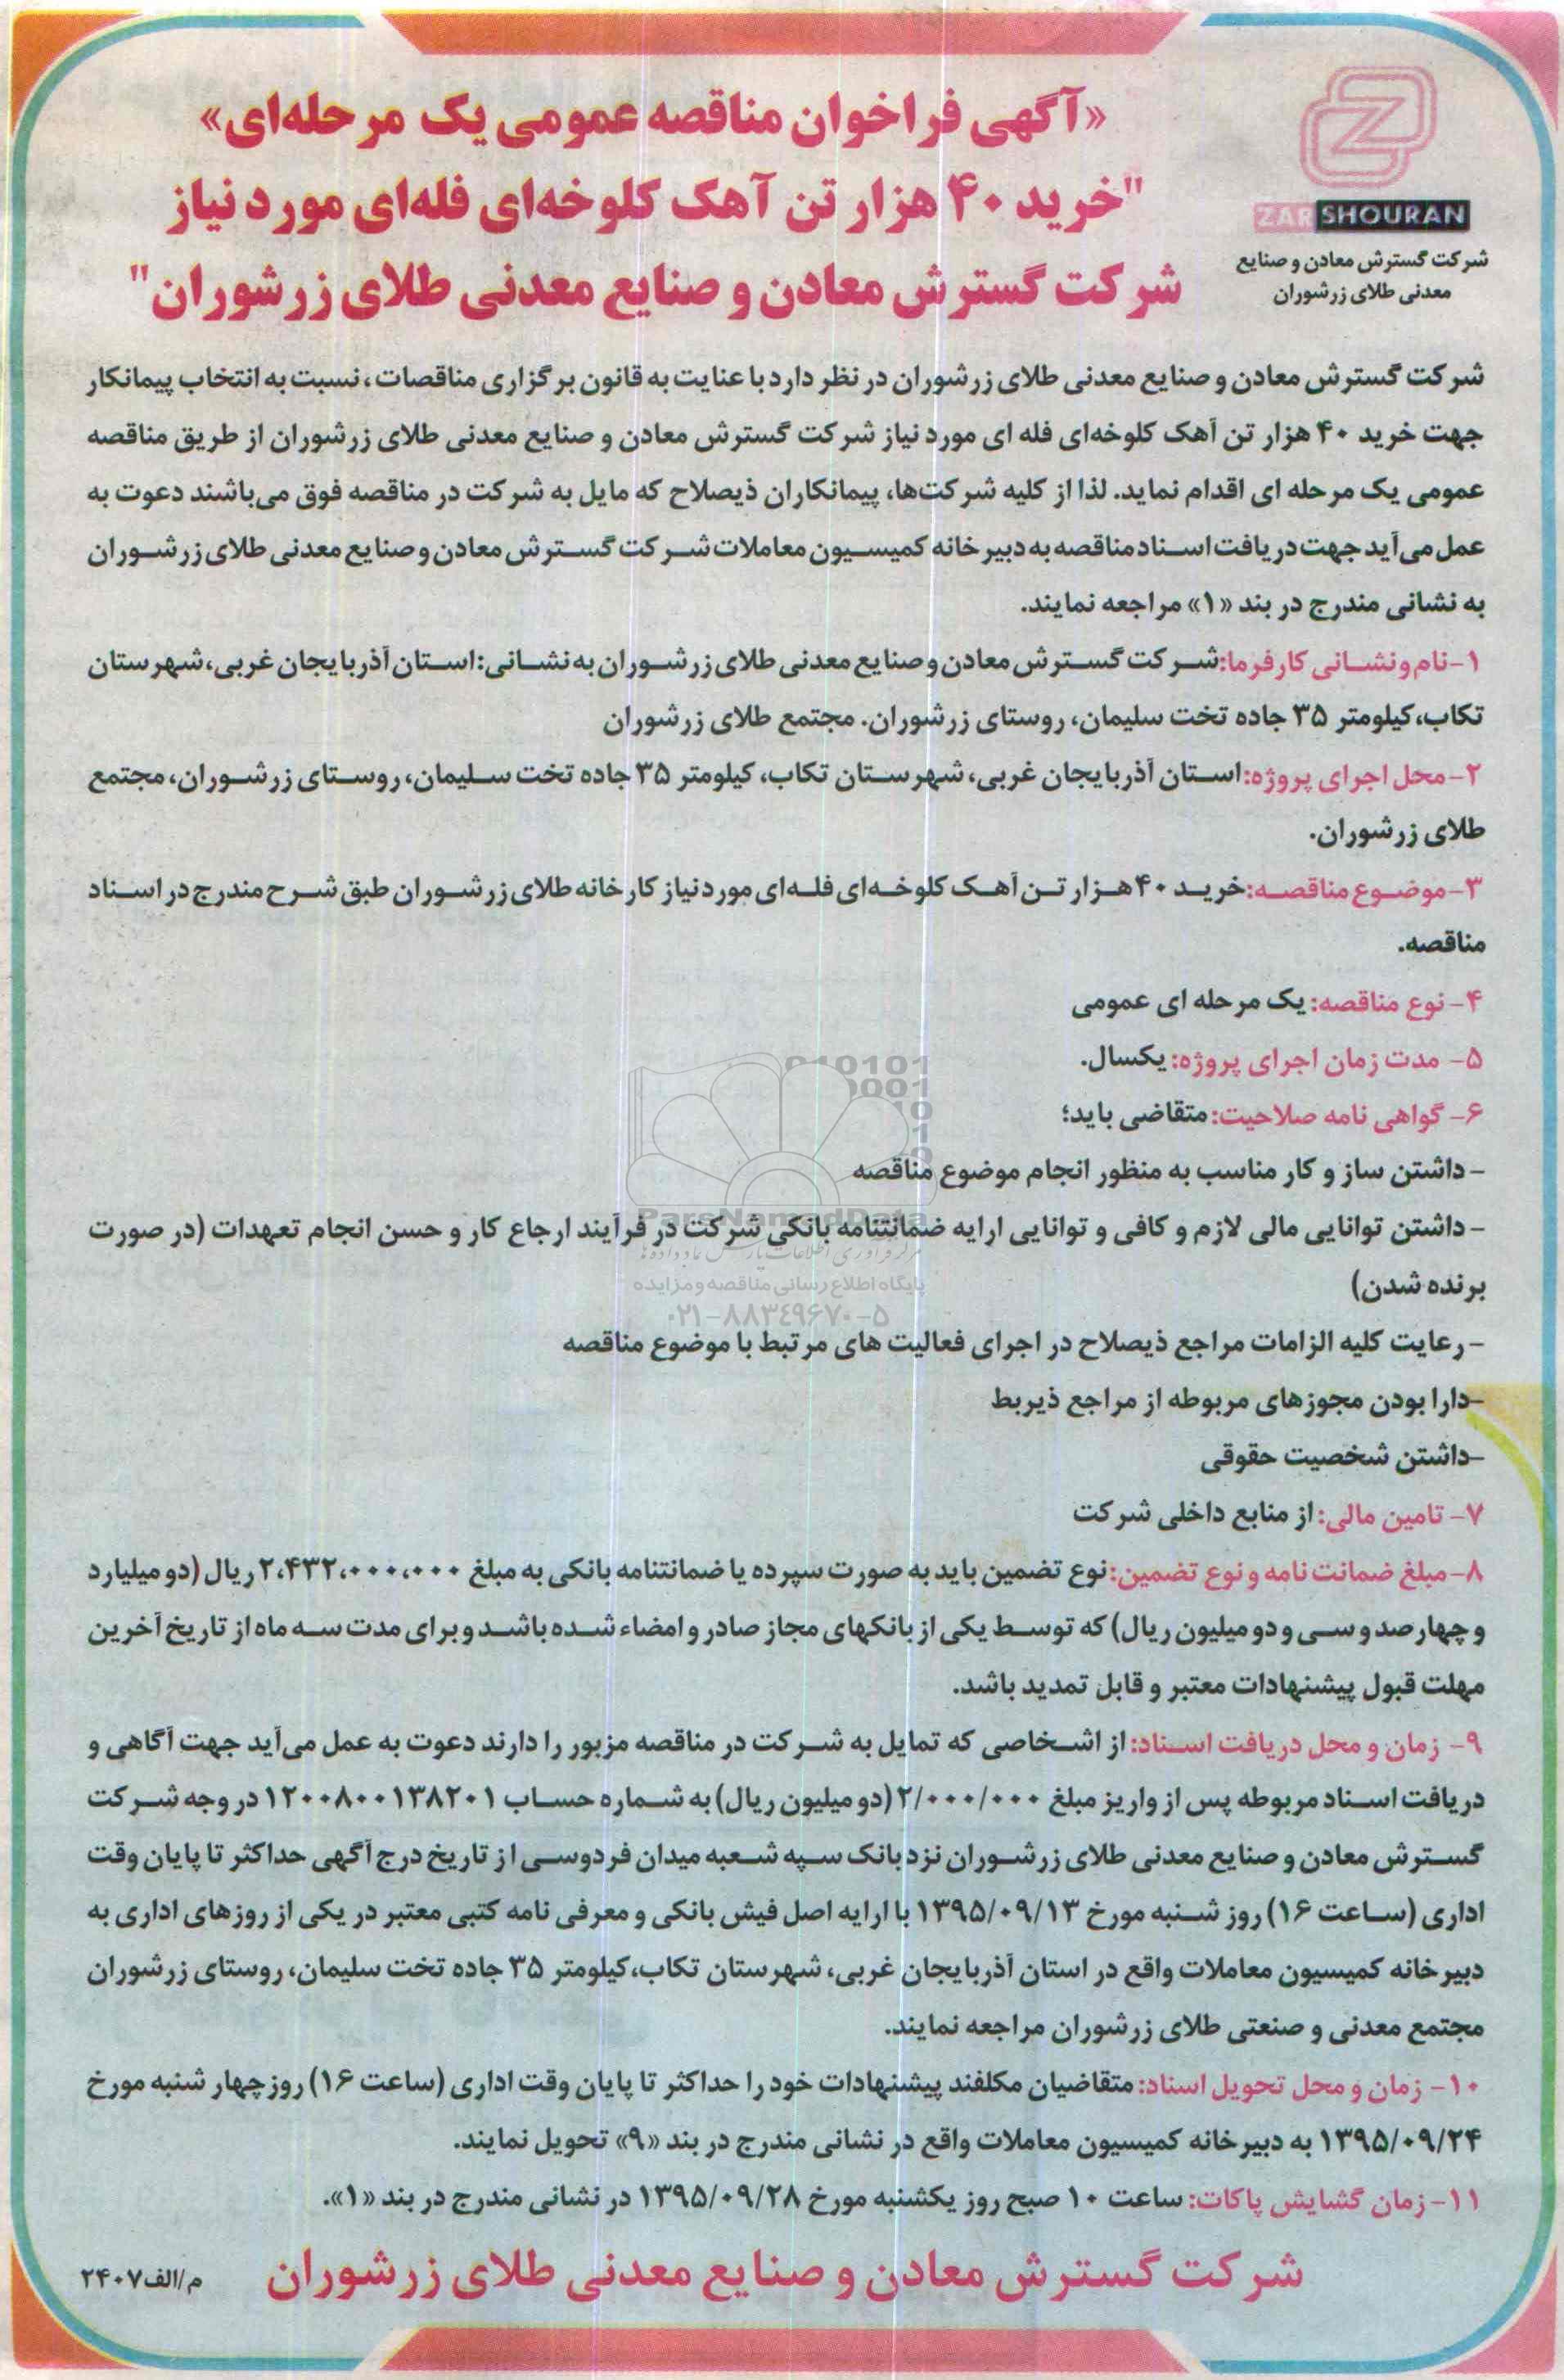 ZARSHOURAN
شرکت گسترش معادن و صنایع
معدنی طلای زرشوران
«آگهی فراخوان مناقصه عمومی یک مرحله‌ای»
"خرید ۴۰ هزار تن آهک کلوخه‌ای فله‌ای مورد نیاز
شرکت گسترش معادن و صنایع معدنی طلای زرشوران"
شرکت گسترش معادن و صنایع معدنی طلای زرشوران در نظر دارد با عنایت به قانون برگزاری مناقصات، نسبت به انتخاب پیمانکار
جهت خرید ۴۰ هزار تن آهک کلوخه‌ای فله ای مورد نیاز شرکت گسترش معادن و صنایع معدنی طلای زرشوران از طریق مناقصه
عمومی یک مرحله ای اقدام نماید. لذا از کلیه شرکت‌ها، پیمانکاران ذیصلاح که مایل به شرکت در مناقصه فوق می‌باشند دعوت به
عمل می‌آید جهت دریافت اسناد مناقصه به دبیرخانه کمیسیون معاملات شرکت گسترش معادن و صنایع معدنی طلای زرشوران
به نشانی مندرج در بند «۱» مراجعه نمایند.
۱-نام و نشانی کارفرما: شرکت گسترش معادن و صنایع معدنی طلای زرشوران به نشانی: استان آذربایجان غربی، شهرستان
تکاب، کیلومتر ۳۵ جاده تخت سلیمان، روستای زرشوران. مجتمع طلای زرشوران
۲- محل اجرای پروژه: استان آذربایجان غربی، شهرستان تکاب، کیلومتر ۳۵ جاده تخت سلیمان، روستای زرشوران، مجتمع
طلای زرشوران.
۳-موضوع مناقصه: خرید ۴۰ هزار تن آهک کلوخه‌ای فله‌ای مورد نیاز کارخانه طلای زرشوران طبق شرح مندرج در اسناد
مناقصه.
۴- نوع مناقصه: یک مرحله ای عمومی
۵- مدت زمان اجرای پروژه: یکسال.
۶- گواهی نامه صلاحیت: متقاضی باید؛
- داشتن ساز و کار مناسب به منظور انجام موضوع مناقصه
- داشتن توانایی مالی لازم و کافی و توانایی ارایه ضمانتنامه بانکی شرکت در فرآیند ارجاع کار و حسن انجام تعهدات (در صورت
برنده شدن)
- رعایت کلیه الزامات مراجع ذیصلاح در اجرای فعالیت های مرتبط با موضوع مناقصه
-دارا بودن مجوزهای مربوطه از مراجع ذیربط
-داشتن شخصیت حقوقی
۷- تامین مالی: از منابع داخلی شرکت
۸- مبلغ ضمانت نامه و نوع تضمین: نوع تضمین باید به صورت سپرده یا ضمانتنامه بانکی به مبلغ ۲،۴۳۲،۰۰۰،۰۰۰ ریال (دو میلیارد
و چهارصد و سی و دو میلیون ریال) که توسط یکی از بانکهای مجاز صادر و امضاء شده باشد و برای مدت سه ماه از تاریخ آخرین
مهلت قبول پیشنهادات معتبر و قابل تمدید باشد.
۹- زمان و محل دریافت اسناد: از اشخاصی که تمایل به شرکت در مناقصه مزبور را دارند دعوت به عمل می‌آید جهت آگاهی و
دریافت اسناد مربوطه پس از واریز مبلغ ۲/۰۰۰/۰۰۰ (دو میلیون ریال) به شماره حساب ۱۲۰۰۸۰۰۱۳۸۲۰۱ در وجه شرکت
گسترش معادن و صنایع معدنی طلای زرشوران نزد بانک سپه شعبه میدان فردوسی از تاریخ درج آگهی حداکثر تا پایان وقت
اداری (ساعت ۱۶) روز شنبه مورخ ۱۳۹۵/۰۹/۱۳ با ارایه اصل فیش بانکی و معرفی نامه کتبی معتبر در یکی از روزهای اداری به
دبیرخانه کمیسیون معاملات واقع در استان آذربایجان غربی، شهرستان تکاب، کیلومتر ۳۵ جاده تخت سلیمان، روستای زرشوران
مجتمع معدنی و صنعتی طلای زرشوران مراجعه نمایند.
۱۰- زمان و محل تحویل اسناد: متقاضیان مکلفند پیشنهادات خود را حداکثر تا پایان وقت اداری (ساعت ۱۶) روز چهار شنبه مورخ
۱۳۹۵/۰۹/۲۴ به دبیرخانه کمیسیون معاملات واقع در نشانی مندرج در بند «۹» تحویل نمایند.
۱۱- زمان گشایش پاکات: ساعت ۱۰ صبح روز یکشنبه مورخ ۱۳۹۵/۰۹/۲۸ در نشانی مندرج در بند «۱».
شرکت گسترش معادن و صنایع معدنی طلای زرشوران
م/الف۲۴۰۷
ParsNamadData
پایگاه اطلاع رسانی مناقصه و مزایده
۰۲۱-۸۸۳۴۹۶۷۰-۵